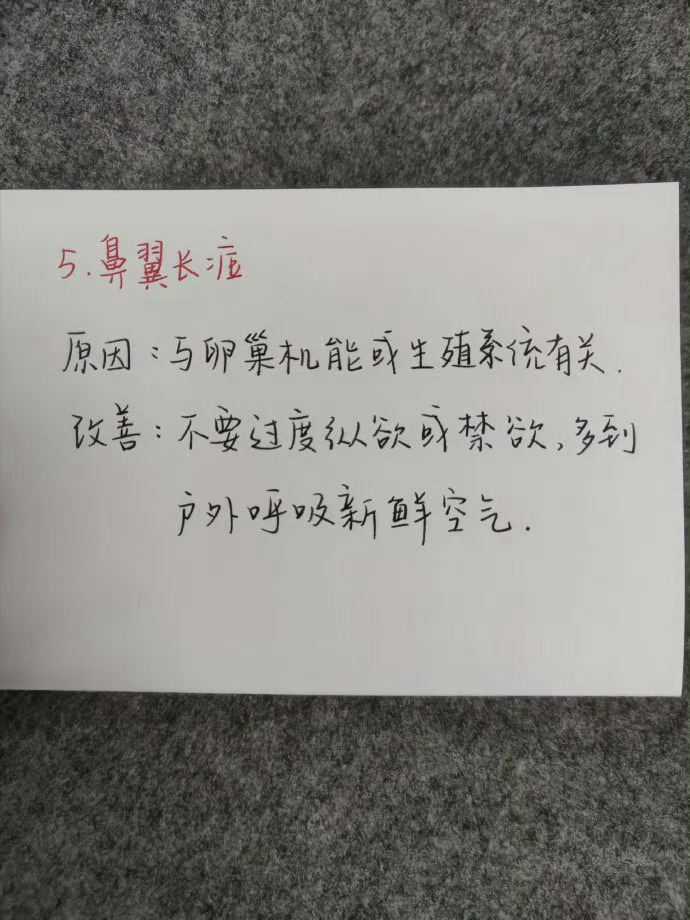 5.鼻翼长痘
原因:与卵巢机能或生殖系统有关.
改善:不要过度纵欲或禁欲,多到
户外呼吸新鲜空气.